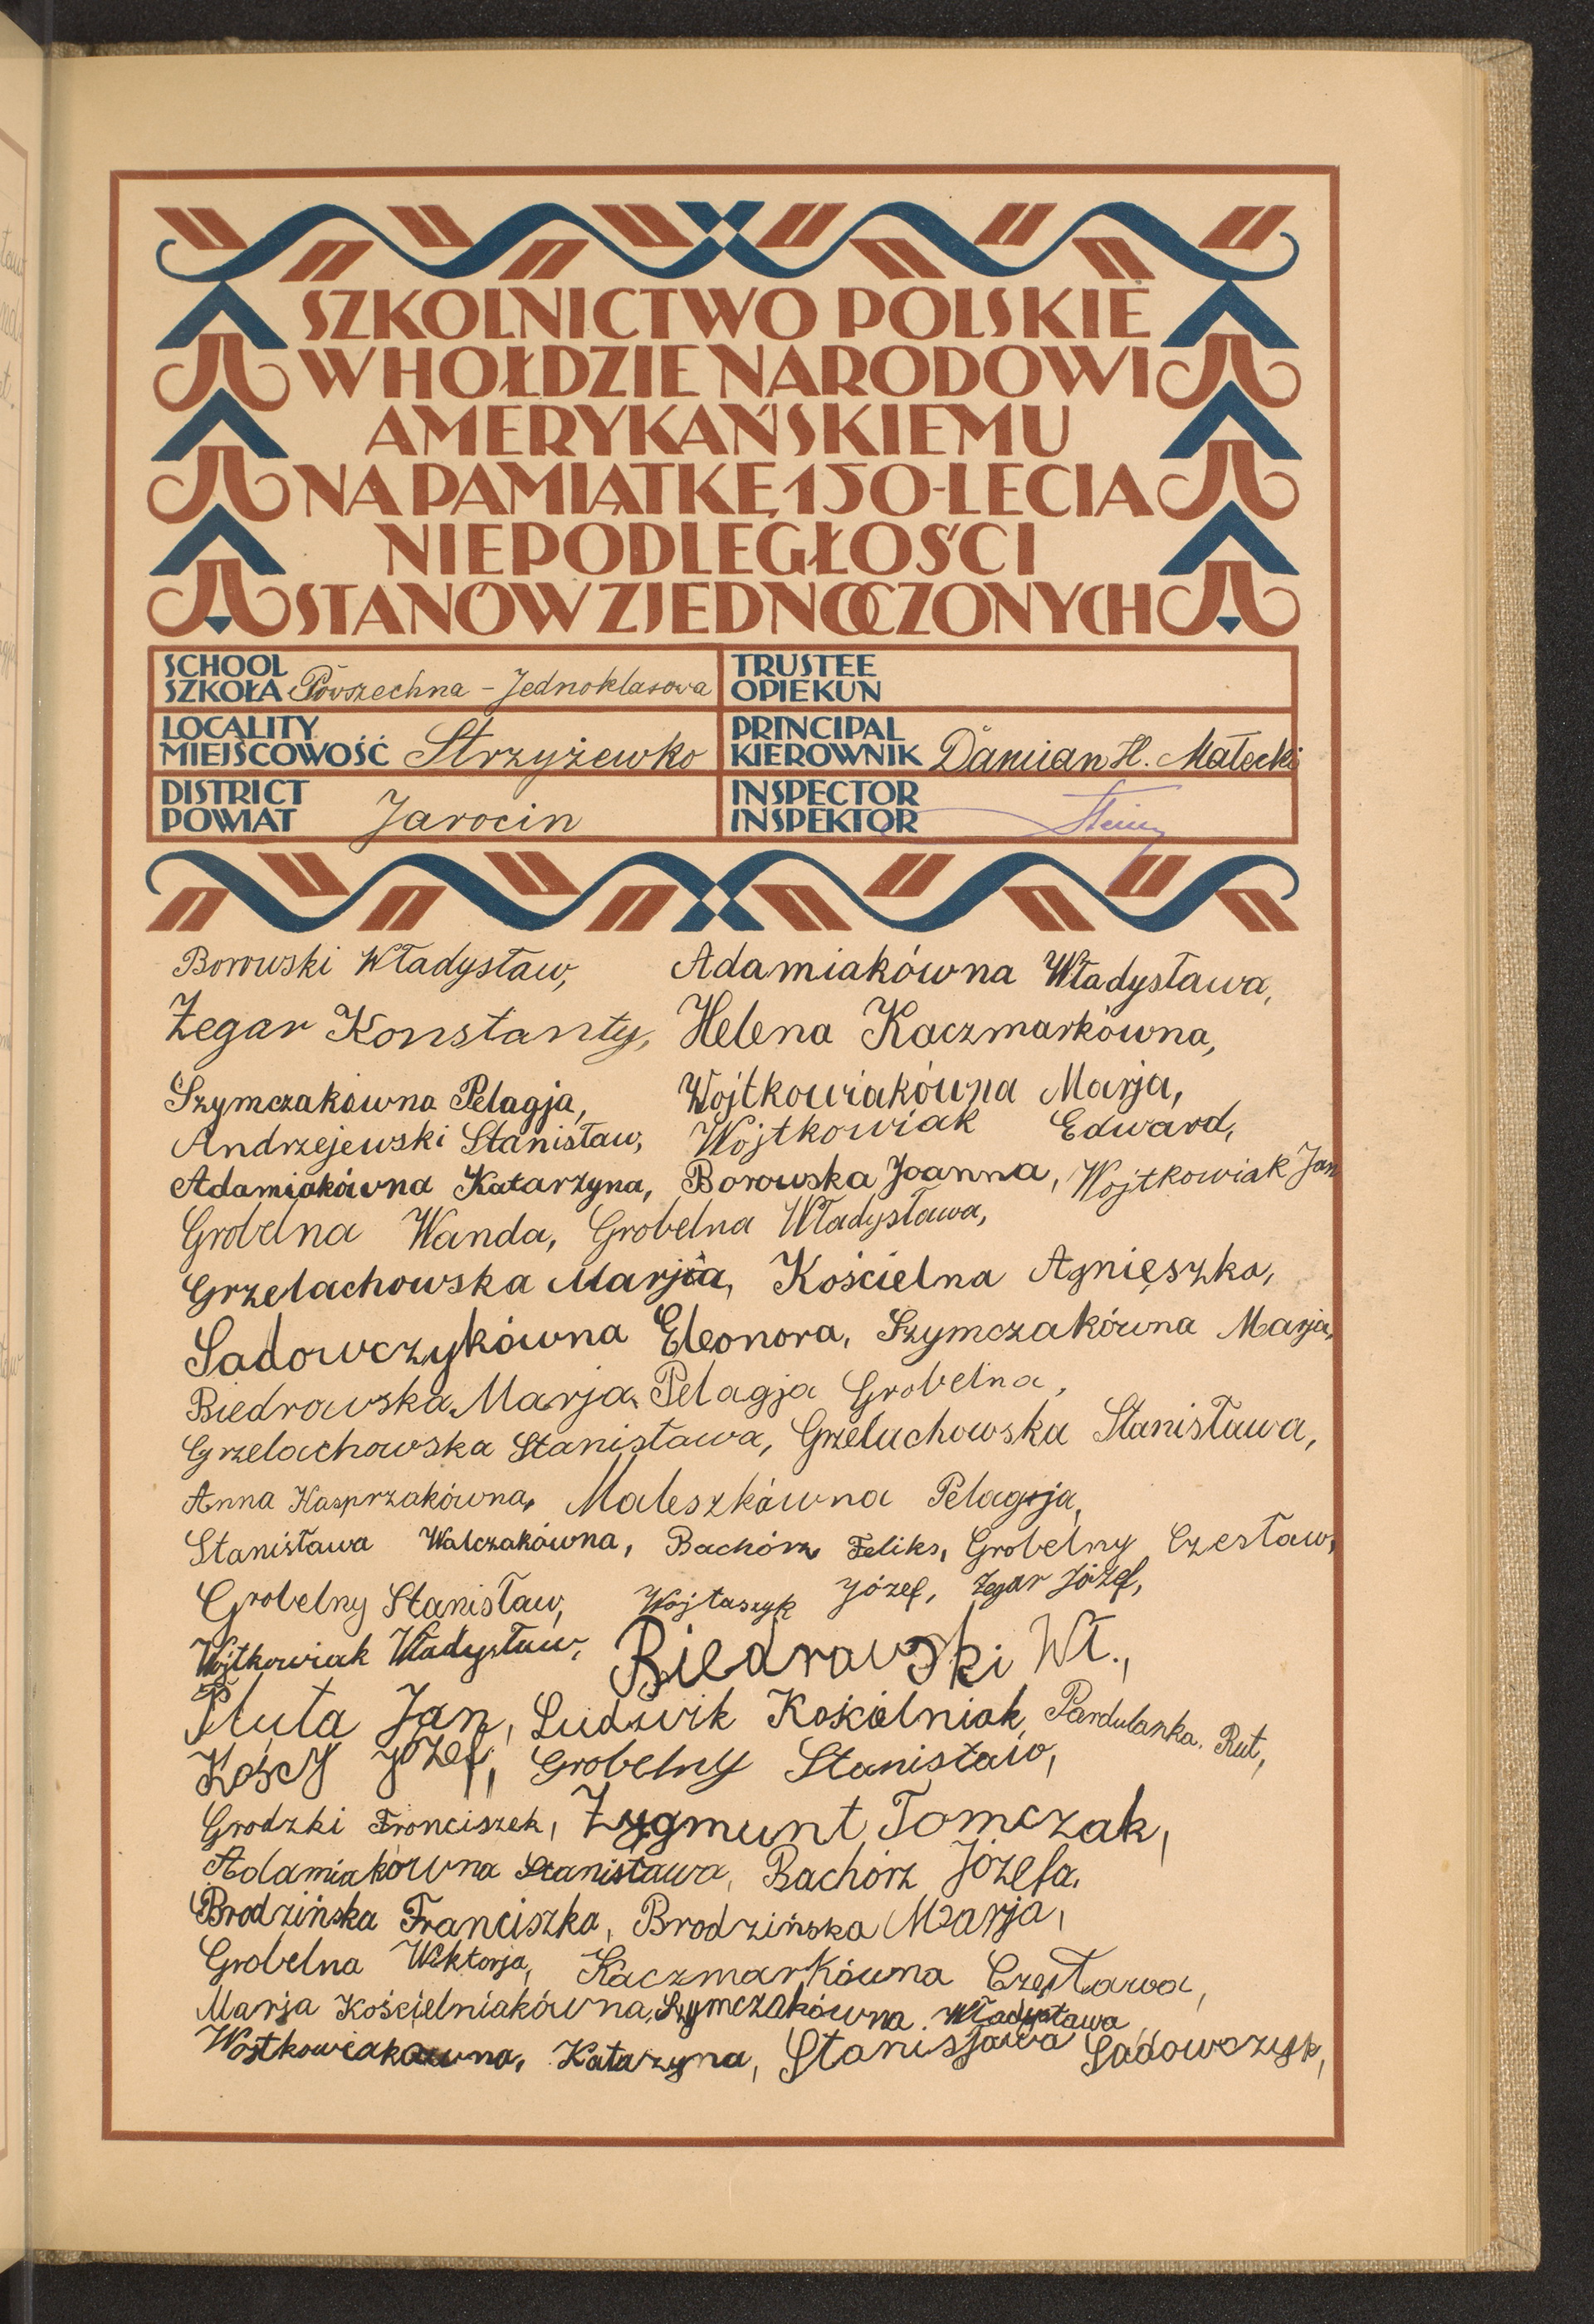 SZKOLNICTWO POLSKIE
W HOŁDZIE NARODOWI
AMERYKAŃSKIEMU
NA PAMIĄTKĘ 150-LECIA
NIEPODLEGŁOŚCI
STANÓW ZJEDNOCZONYCH
SCHOOL
SZKOŁA Powszechna - Jednoklasowa
TRUSTEE
OPIEKUN
LOCALITY
MIEJSCOWOŚĆ Strzyżewko
PRINCIPAL
KIEROWNIK Damian H. Małecki
DISTRICT
POWIAT Jarocin
INSPECTOR
INSPEKTOR
Borowski Władysław, Adamiakówna Władysława,
Zegar Konstanty, Helena Kaczmarkówna,
Szymczakówna Pelagja, Wojtkowiakówna Marja,
Andrzejewski Stanisław, Wojtkowiak Edward,
Adamiakówna Katarzyna, Borowska Joanna, Wojtkowiak Jan
Grobelna Wanda, Grobelna Władysława,
Grzelachowska Marja, Kościelna Agnięszka,
Sadowczykówna Eleonora, Szymczakówna Marja,
Biedrowska Marja, Pelagja Grobelna,
Grzelachowska Stanisława, Grzelachowska Stanisława,
Anna Kasprzakówna, Maleszkówna Pelagja,
Stanisława Walczakówna, Bachórz Feliks, Grobelny Czesław,
Grobelny Stanisław, Wojtaszyk Józef, Zegar Józef,
Wojtkowiak Władysław, Biedrowski Wł.,
Pluta Jan, Ludwik Kościelniak, Pardulanka. Rut,
Józef, Grobelny Stanisław,
Grodzki Franciszek, Zygmunt Tomczak,
Adamiakówna Stanisława, Bachórz Józefa.
Brodzińska Franciszka, Brodzińska Marja,
Grobelna Wiktorja, Kaczmarkówna Czesława,
Marja Kościelniakówna, Szymczakówna. Władysława
Wojtkowiakówna, Katarzyna, Stanisława Sadowczyk,